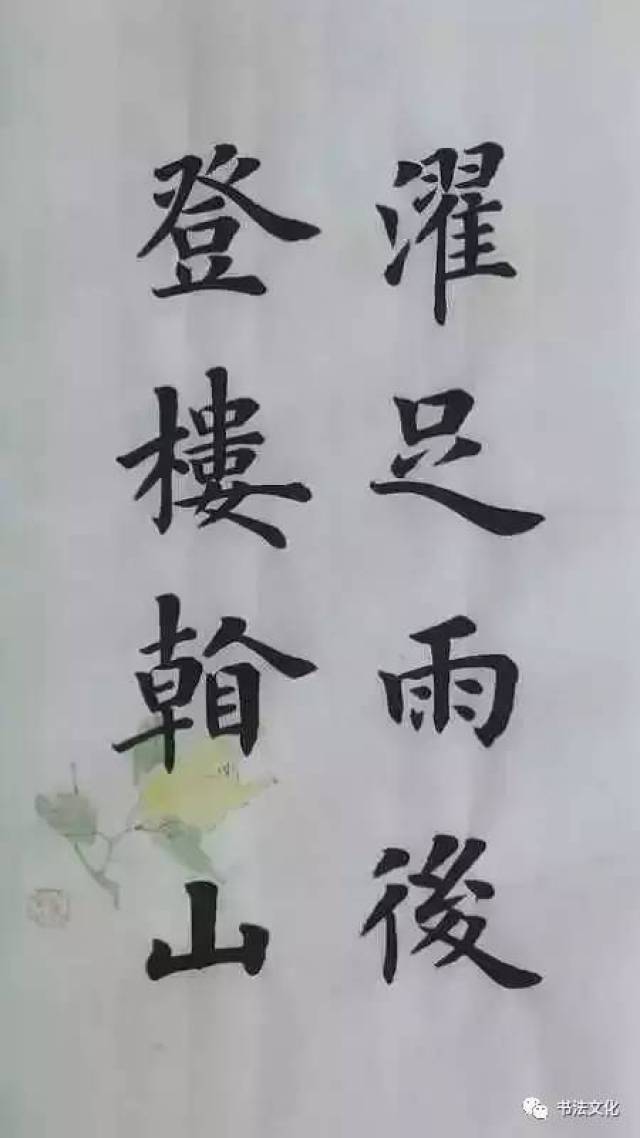 濯足雨後
登樓山
书法文化